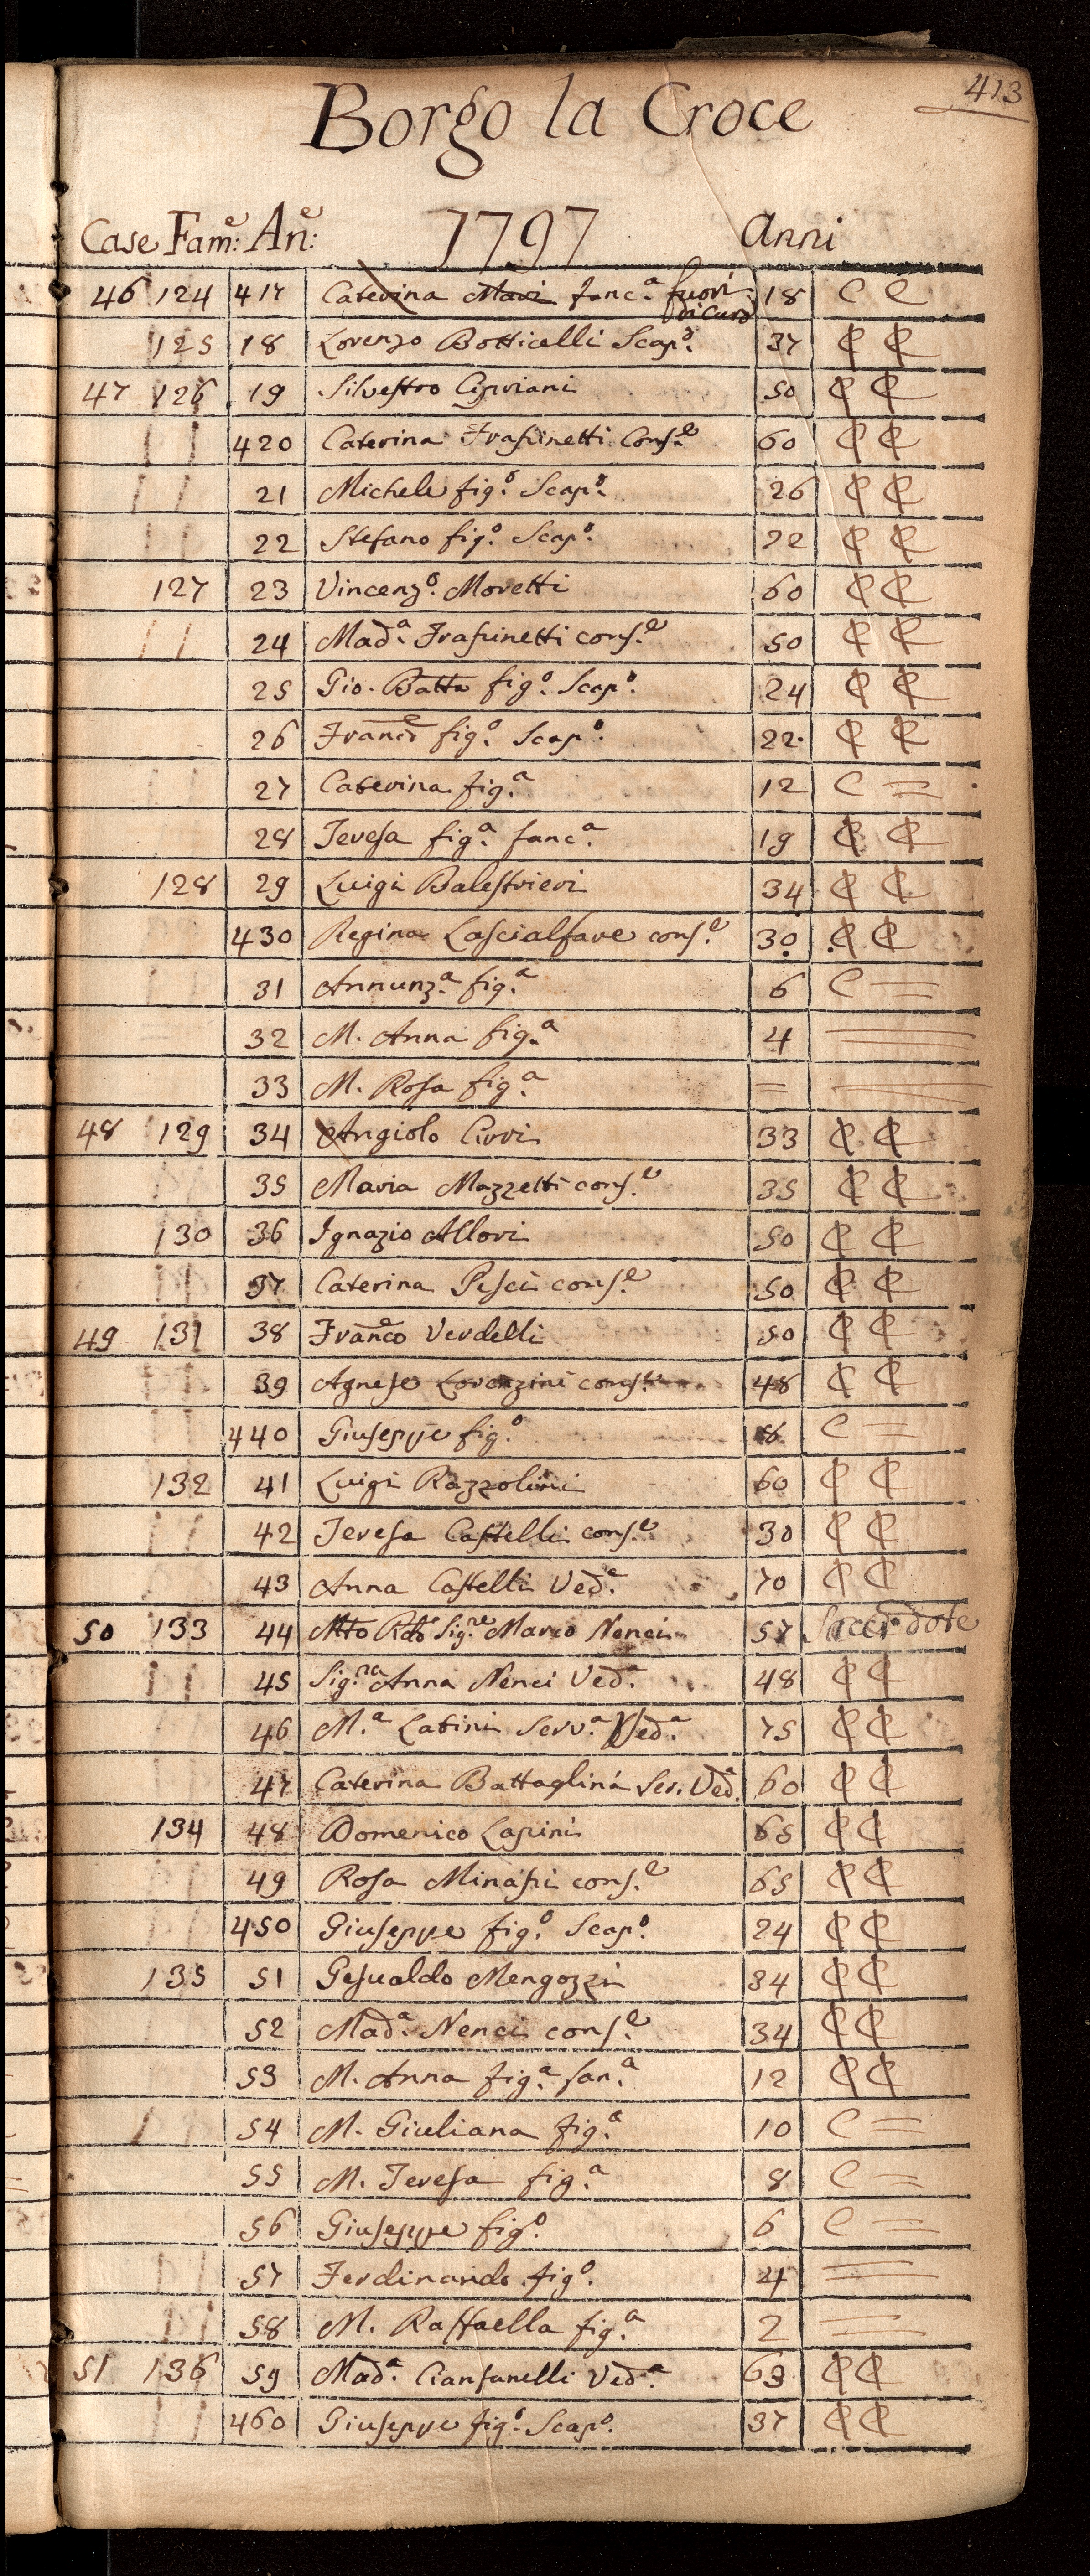 413
Borgo la Croce
Case Fam:e An:e 1797 Anni
46 124 417 Caterina Mari fanc.a fuori di Cura 18 C C
125 18 Lorenzo Botticelli Scap.o 37 C C
47 126 19 Silvestro Cipriani 50 C C
420 Caterina Frasinetti Cons.e 60 C C
21 Michele fig.o Scap.o 26 C C
22 Stefano fig.o Scap.o 22 C C
127 23 Vincenz.o Moretti 60 C C
24 Mad.a Frasinetti cons.e 50 C C
25 Gio. Batta fig.o Scap.o 24 C C
26 Franco fig.o Scap.o 22 C C
27 Caterina fig.a 12 C =
28 Teresa fig.a fanc.a 19 C C
128 29 Luigi Balestrieri 34 C C
430 Regina Lascialfare cons.e 30 C C
31 Annunz.a fig.a 6 C =
32 M. Anna fig.a 4 =
33 M. Rosa fig.a = =
48 129 34 Angiolo Cirri 33 C C
35 Maria Mazzetti cons.e 35 C C
130 36 Ignazio Allori 50 C C
37 Caterina Pesci cons.e 50 C C
49 131 38 Franco Verdelli 50 C C
39 Agnese Lorenzini cons.e 48 C C
440 Giuseppe fig.o 8 C =
132 41 Luigi Razzolini 60 C C
42 Teresa Castelli cons.e 30 C C
43 Anna Castelli Ved.a 70 C C
50 133 44 Mto Rdo Sig.re Marco Nenci 57 Sacerdote
45 Sig.ra Anna Nenci Ved.a 48 C C
46 M.a Latini Serv.a Ved.a 75 C C
47 Caterina Battaglini Ser. Ved.a 60 C C
134 48 Domenico Lapini 65 C C
49 Rosa Minasi cons.e 65 C C
450 Giuseppe fig.o Scap.o 24 C C
135 51 Gesualdo Mengozzi 34 C C
52 Mad.a Nenci cons.e 34 C C
53 M. Anna fig.a fan.a 12 C C
54 M. Giuliana fig.a 10 C =
55 M. Teresa fig.a 8 C =
56 Giuseppe fig.o 6 C =
57 Ferdinando fig.o 4 =
58 M. Raffaella fig.a 2 =
51 136 59 Mad.a Cianfanelli Ved.a 63 C C
460 Giuseppe fig.o Scap.o 37 C C